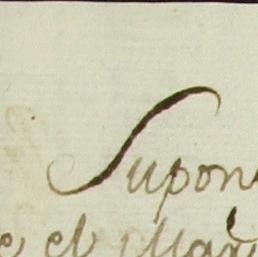 Supon
e el Mar